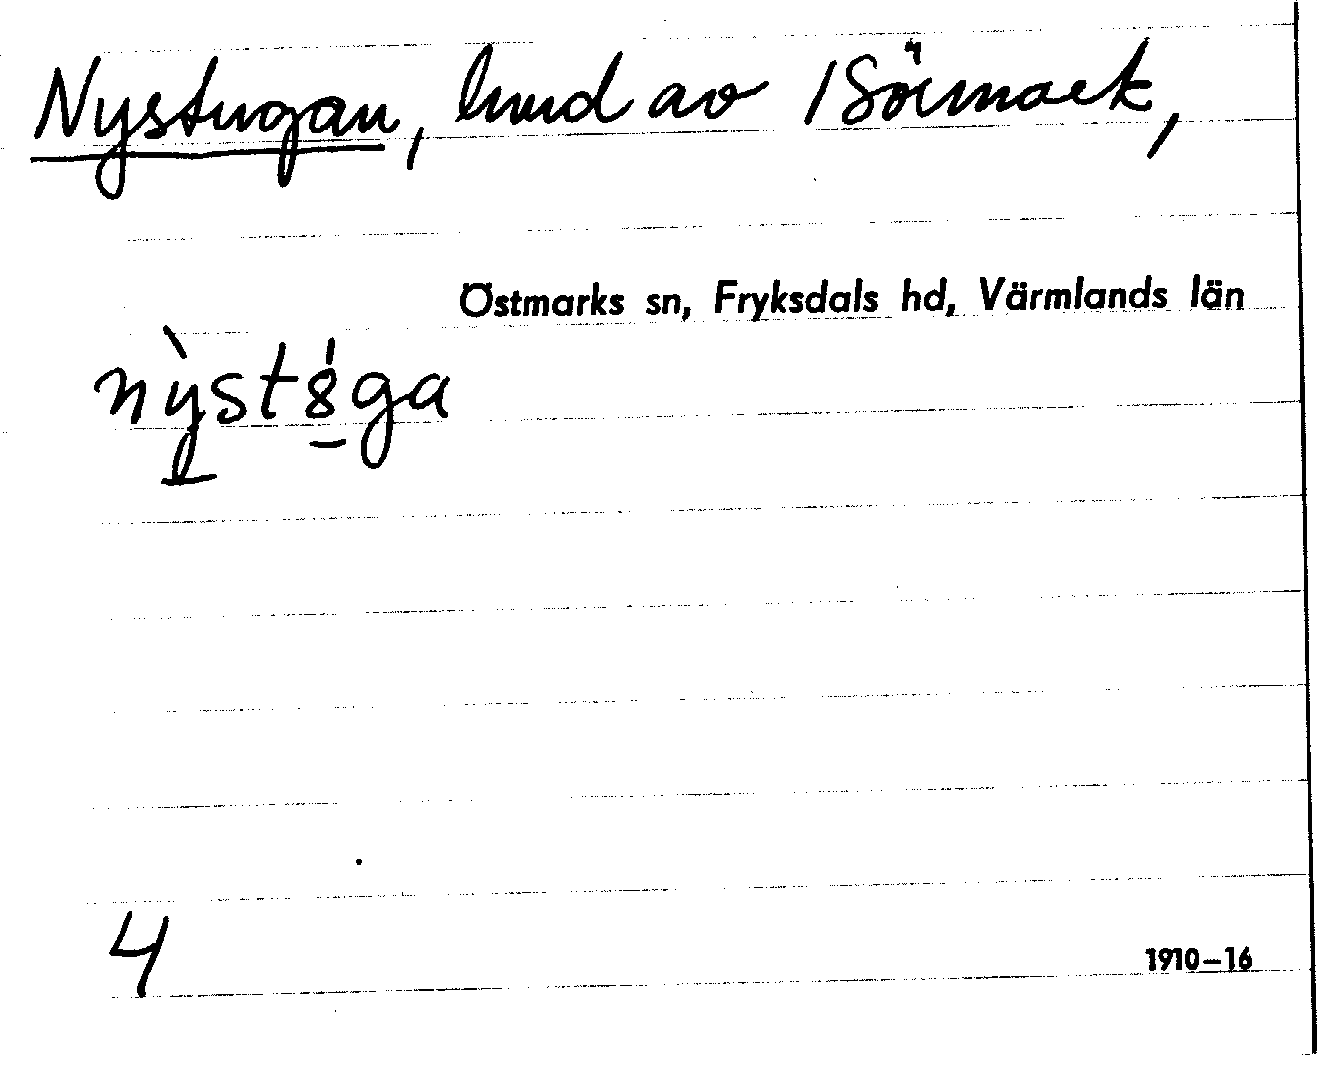 Nystugan, hmd av 1 Sörmark,
Östmarks sn, Fryksdals hd, Värmlands län
nỳst8́ga
4
1910–16